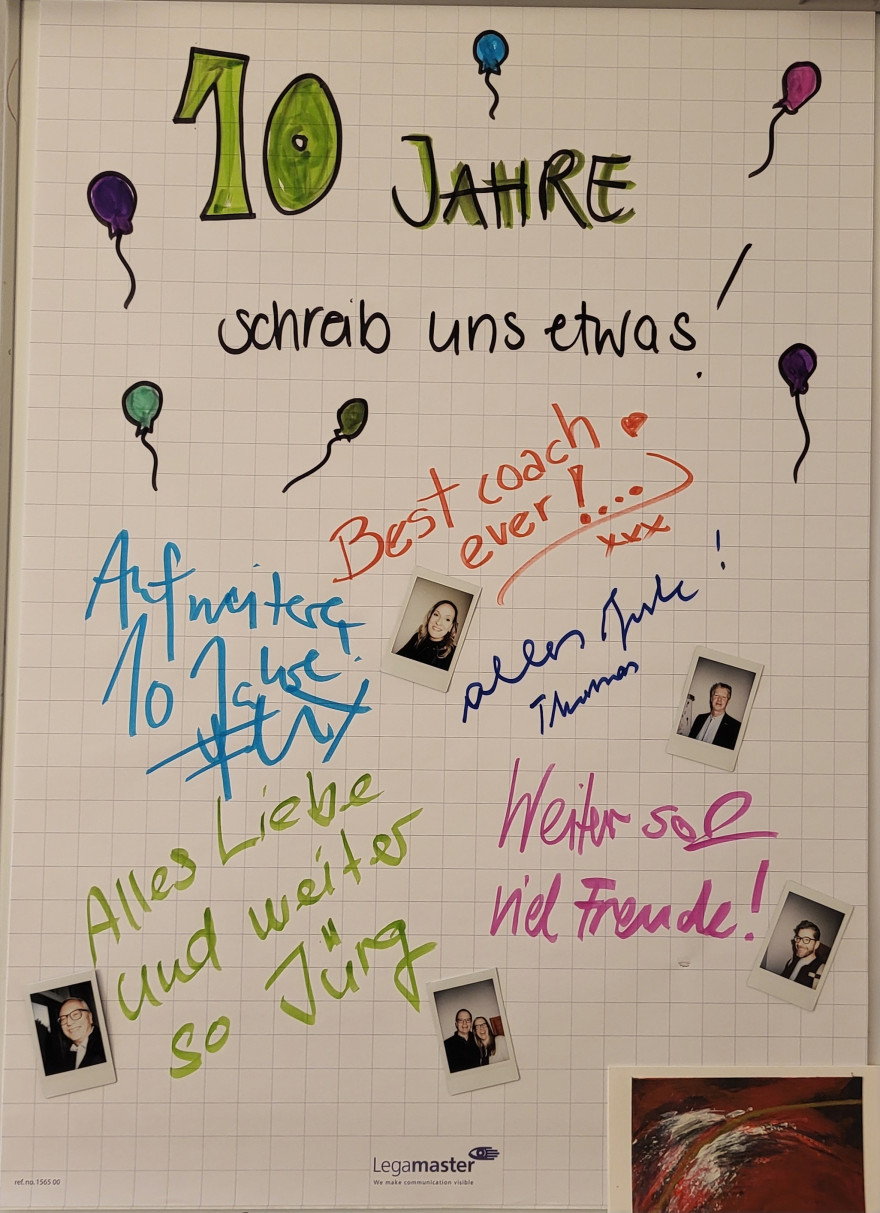 10 JAHRE
schreib uns etwas!
Best coach
ever!...
xxx
Auf weitere
10 Jahre!
alles Gute!
Thomas
Alles Liebe
und weiter
so Jürg
Weiter so
viel Freude!
Legamaster
We make communication visible
ref.no.1565 00